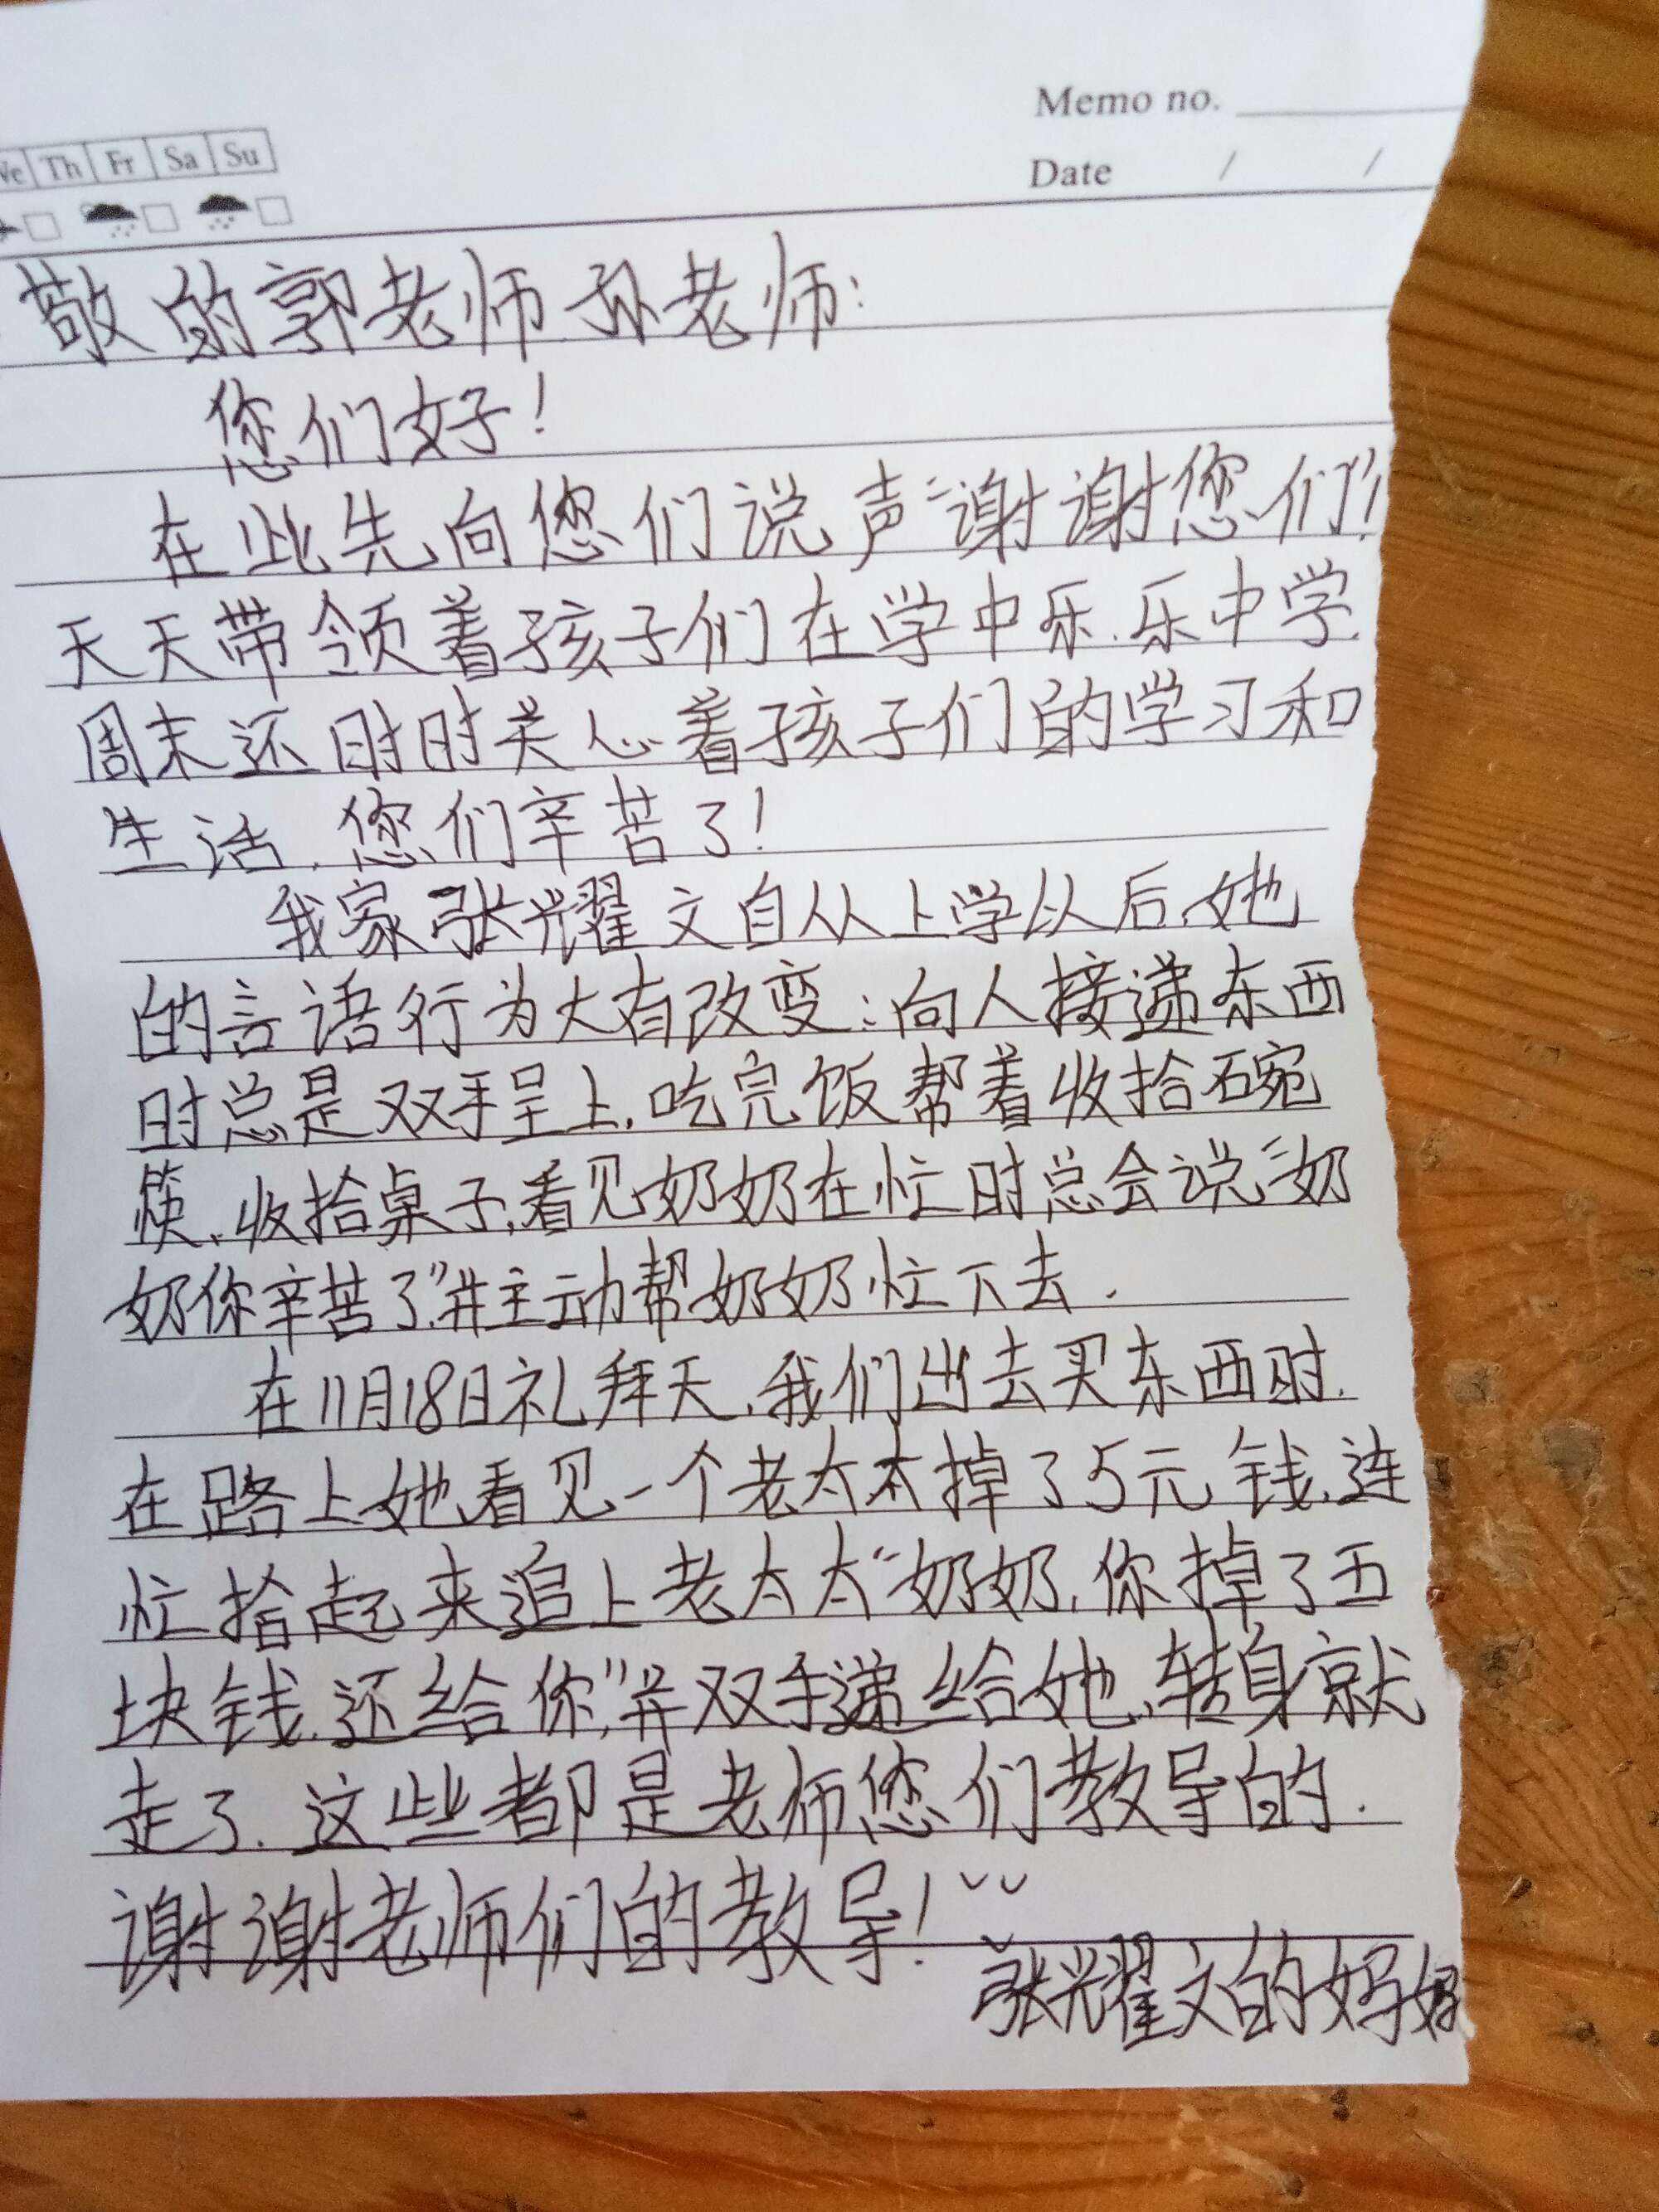 Memo no.
We Th Fr Sa Su
Date / /
敬的郭老师.孙老师:
您们好!
在此先向您们说声“谢谢您们”!
天天带领着孩子们在学中乐.乐中学.
周末还时时关心着孩子们的学习和
生活.您们辛苦了!
我家张耀文自从上学以后,她
的言语行为大有改变:向人接递东西
时总是双手呈上,吃完饭帮着收拾碗
筷、收拾桌子,看见奶奶在忙时总会说“奶
奶你辛苦了”,并主动帮奶奶忙下去.
在11月18日礼拜天,我们出去买东西时.
在路上她看见一个老太太掉了5元钱,连
忙拾起来追上老太太“奶奶,你掉了五
块钱,还给你”,并双手递给她,转身就
走了.这些都是老师您们教导的.
谢谢老师们的教导!
张耀文的妈妈